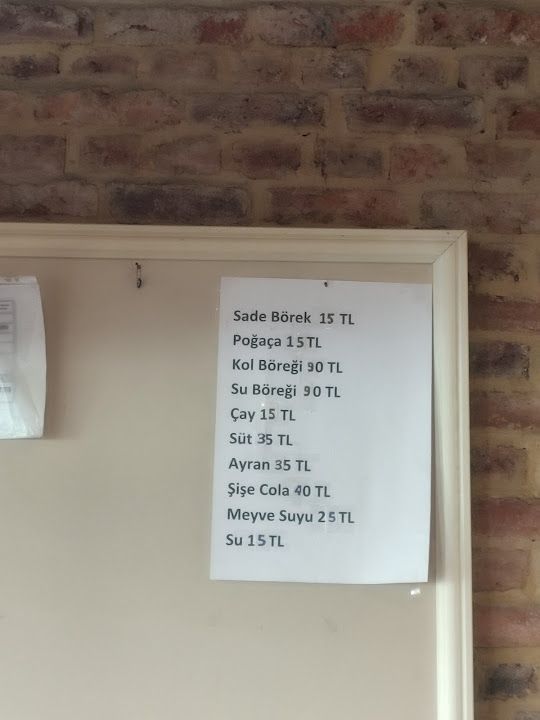 Sade Börek 15 TL
Poğaça 15 TL
Kol Böreği 90 TL
Su Böreği 90 TL
Çay 15 TL
Süt 35 TL
Ayran 35 TL
Şişe Cola 40 TL
Meyve Suyu 25 TL
Su 15 TL